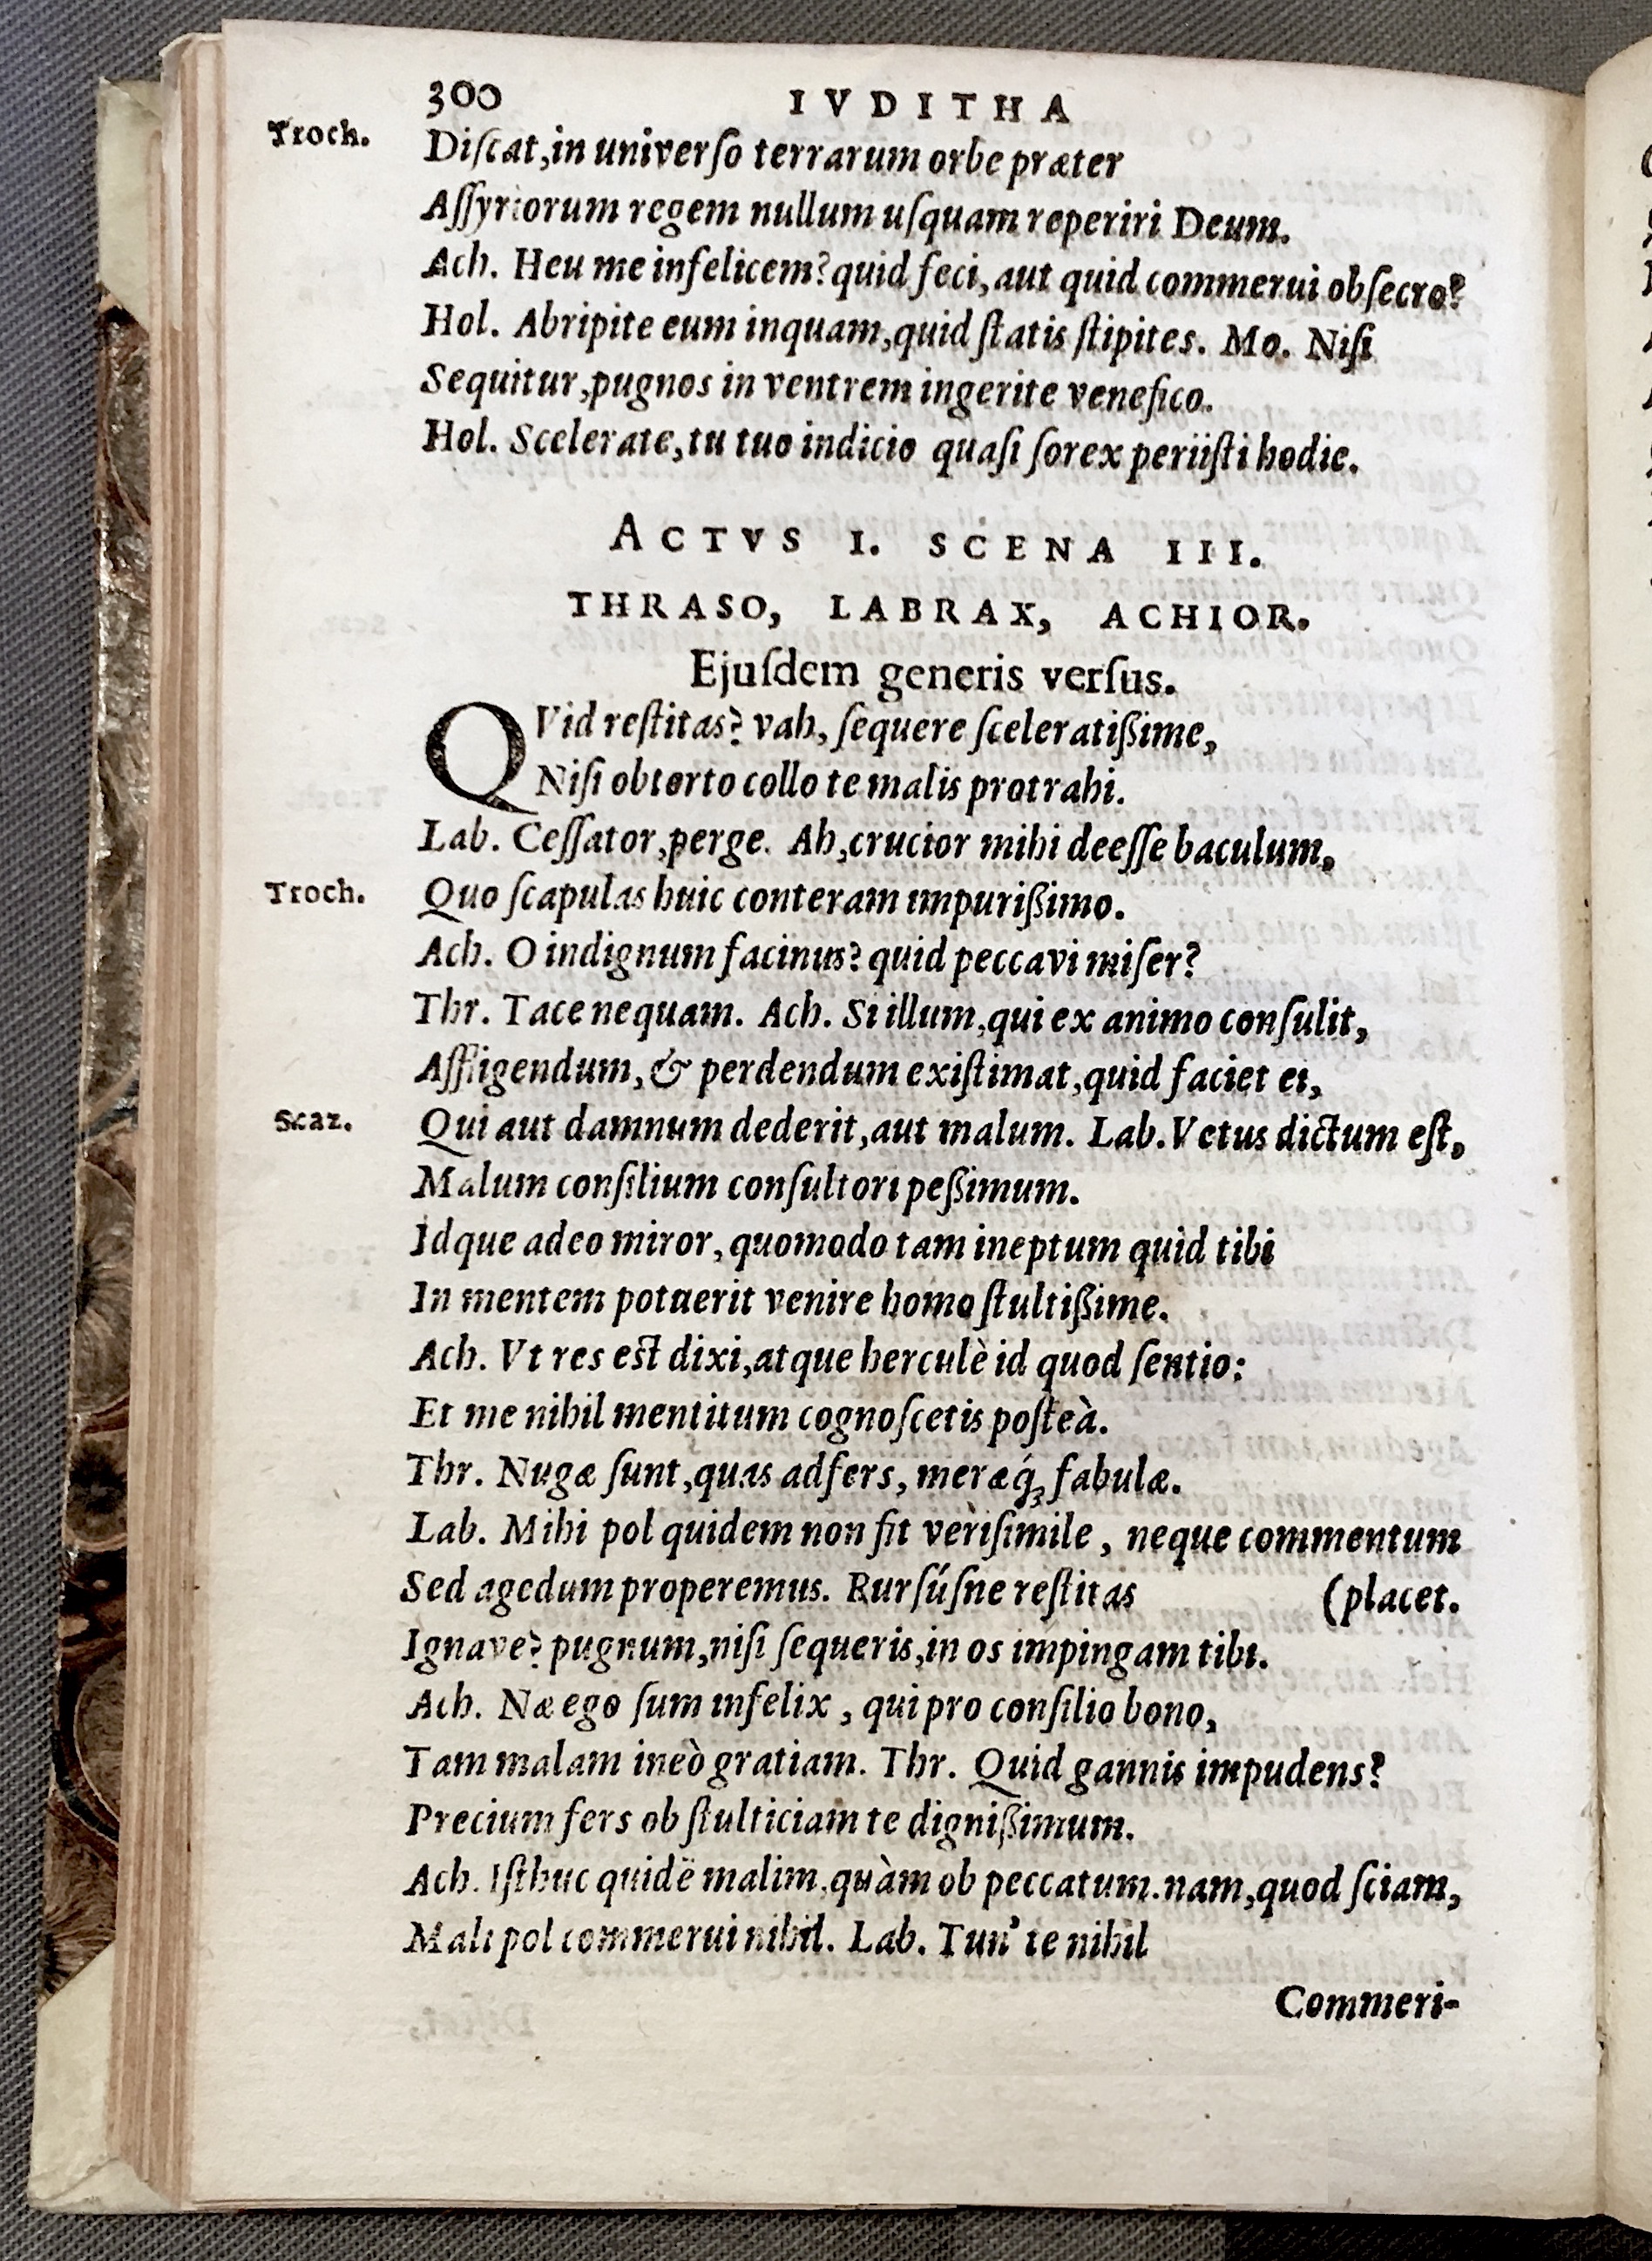 300 IVDITHA
Troch. Diſcat, in univerſo terrarum orbe præter
Aſſyriorum regem nullum uſquam reperiri Deum.
Ach. Heu me infelicem? quid feci, aut quid commerui obſecro?
Hol. Abripite eum inquam, quid ſtatis ſtipites. Mo. Niſi
Sequitur, pugnos in ventrem ingerite venefico.
Hol. Scelerate, tu tuo indicio quaſi ſorex periiſti hodie.
ACTVS I. SCENA III.
THRASO, LABRAX, ACHIOR.
Ejuſdem generis verſus.
QVid reſtitas? vah, ſequere ſceleratißime,
Niſi obtorto collo te malis protrahi.
Lab. Ceſſator, perge. Ah, crucior mihi deeſſe baculum,
Troch. Quo ſcapulas huic conteram impurißimo.
Ach. O indignum facinus? quid peccavi miſer?
Thr. Tace nequam. Ach. Si illum, qui ex animo conſulit,
Affligendum, & perdendum exiſtimat, quid faciet ei,
Scaz. Qui aut damnum dederit, aut malum. Lab. Vetus dictum eſt,
Malum conſilium conſultori peßimum.
Idque adeo miror, quomodo tam ineptum quid tibi
In mentem potuerit venire homo ſtultißime.
Ach. Vt res eſt dixi, atque herculè id quod ſentio:
Et me nihil mentitum cognoſcetis poſteà.
Thr. Nugæ ſunt, quas adfers, meræq́; fabulæ.
Lab. Mihi pol quidem non fit veriſimile, neque commentum
Sed agedum properemus. Rurſúſne reſtitas (placet.
Ignave? pugnum, niſi ſequeris, in os impingam tibi.
Ach. Næ ego ſum infelix, qui pro conſilio bono,
Tam malam ineò gratiam. Thr. Quid gannis impudens?
Precium fers ob ſtulticiam te dignißimum.
Ach. Iſthuc quidē malim, quàm ob peccatum. nam, quod ſciam,
Mali pol commerui nihil. Lab. Tun' te nihil
Commeri-